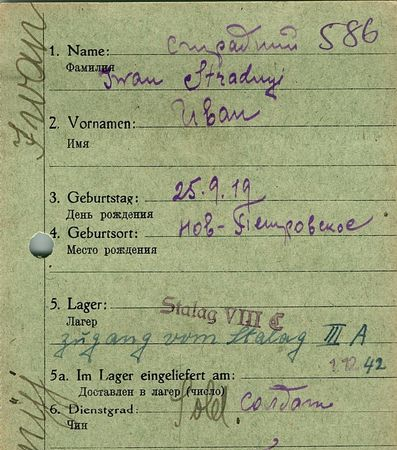 Iwan
1. Name: Страдний 586
Фамилия
Iwan Stradnyj
2. Vornamen: Иван
Имя
3. Geburtstag: 25.9.19
День рождения
4. Geburtsort: Нов-Петровское
Место рождения
5. Lager: Stalag VIII C
Лагер
zugang vom Stalag III A
1.12.42
5a. Im Lager eingeliefert am:
Доставлен в лагер (число)
6. Dienstgrad: Sold. солдат
Чин